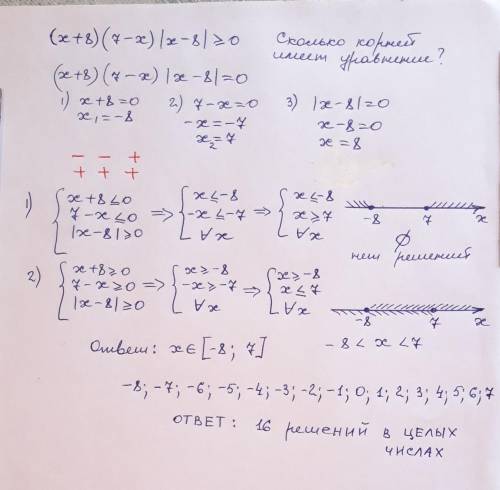 (x+8)(7-x)|x-8|⩾0 Сколько корней
имеет уравнение?
(x+8)(7-x)|x-8|=0
1) x+8=0 2) 7-x=0 3) |x-8|=0
x₁=-8 -x=-7 x-8=0
x₂=7 x=8
- - +
+ + +
1) { x+8⩽0 => { x⩽-8 => { x⩽-8
7-x⩽0 -x⩽-7 x⩾7
|x-8|⩾0 ∀x ∀x
-8 7 x
∅
нет решений
2) { x+8⩾0 => { x⩾-8 => { x⩾-8
7-x⩾0 -x⩾-7 x⩽7
|x-8|⩾0 ∀x ∀x
-8 7 x
Ответ: x∈[-8; 7] -8<x<7
-8; -7; -6; -5; -4; -3; -2; -1; 0; 1; 2; 3; 4; 5; 6; 7
ОТВЕТ: 16 решений в целых
числах